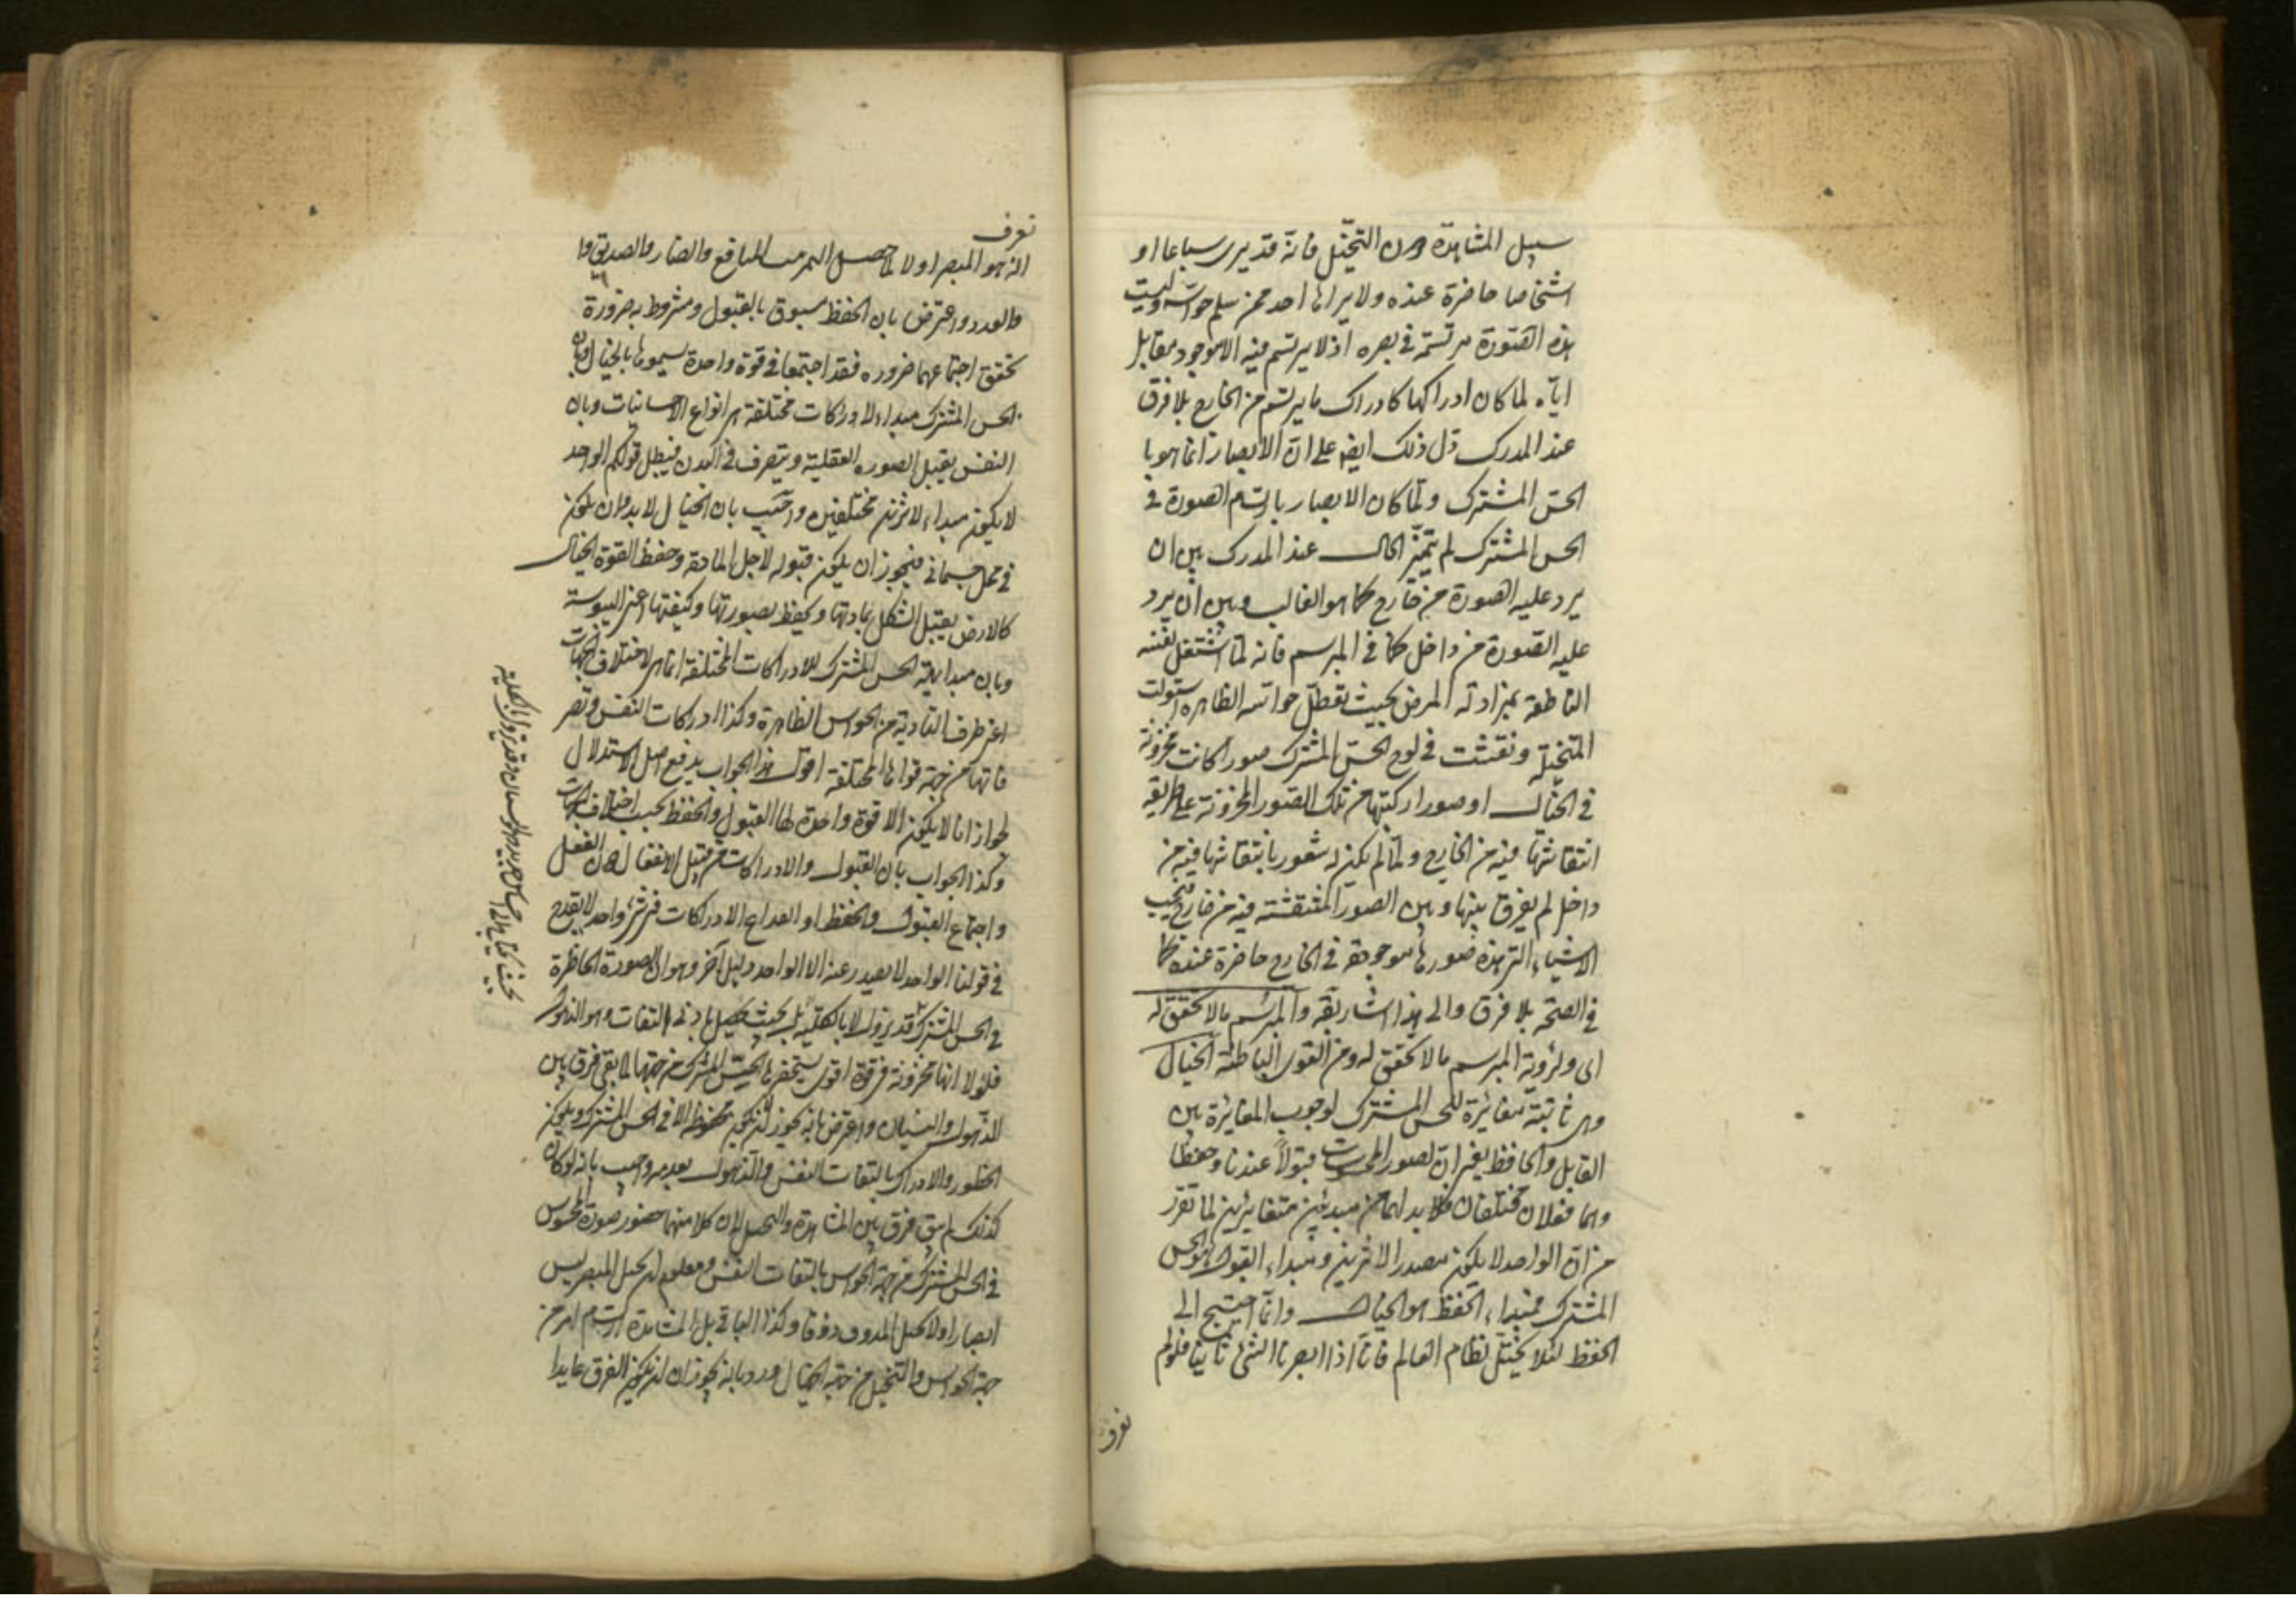 سبيل المشاهدة دون التخيّل فانه قد يرى سباعا او
اشخاصا حاضرة عنده ولا يراها احد ممن سلم حواسه وليست
هذه الصّورة مرتسمة في بصره اذ لا يرتسم فيه الا موجود مقابل
اياه لما كان ادراكها كادراك ما يرتسم من الخارج بلا فرق
عند المدرك دل ذلك ايضا على ان الابصار انما هو با
لحسّ المشترك ولمّا كان الابصار بارتسام الصورة في
الحس المشترك لم يتميّز الحال عند المدرك بين ان
يرد عليه الصورة من خارج كما هو الغالب وبين ان يرد
عليه الصّورة من داخل كما في المبرسم فانه لما اشتغل نفسه
الناطقة بمزاولة المرض بحيث تعطّل حواسه الظاهرة استولت
المتخيّلة ونقشت في لوح الحسّ المشترك صورا كانت مخزونة
في الخيال او صورا ركبتها من تلك الصّور المخزونة على طريقة
انتقاشها فيه من الخارج ولمّا لم يكن له شعور بانتقاشها فيه من
داخل لم يفرق بينها وبين الصور المنتقشة فيه من خارج فيحسب
الاشياء التي هذه صورها موجودة في الخارج حاضرة عنده كما
في الصحّة بلا فرق والى هذا اشار بقوله والمبرسم ما لا تحقق له
اى ولرؤية المبرسم ما لا تحقق له ومن القوى الباطنة الخيال
وهي ثابتة مغائرة للحس المشترك لوجوب المغائرة بين
القابل والحافظ يعني ان لصور المحسوسات قبولاً عندنا وحفظا
وهما فعلان مختلفان فلا بد لهما من مبدئين متغايرين لما تقرّر
من ان الواحد لا يكون مصدرا لاثرين ومبداء القبول هو الحس
المشترك فمبداء الحفظ هو الخيال وانما احتيج الى
الحفظ لئلا يختل نظام العالم فانّا اذا ابصرنا الشئ ثانيا فلو لم
نعرف
نعرف
انه هو المبصر اولا لما حصل التمييز بين المنافع والضار والصديق
والعدو واعترض بان الحفظ مسبوق بالقبول ومشروط به ضرورة
تحقق اجتماعهما ضرورة فقد اجتمعا في قوة واحدة سميتموها بالخيال وبان
الحس المشترك مبداء لادراكات مختلفة هي انواع الاحساسات وبان
النفس يقبل الصورة العقلية ويتصرف في البدن فيبطل قولكم الواحد
لا يكون مبداء لاثرين مختلفين واجيب بان الخيال لا بد وان يكون
في محل جسماني فيجوز ان يكون قبوله لاجل المادة وحفظه لقوة الخيال
كالارض يقبل الشكل بمادتها ويحفظ بصورتها وكيفيتها اعني اليبوسة
وبان مبدائية الحس المشترك للادراكات المختلفة انما هي لاختلاف الجهات
اعني طرف التادية من الحواس الظاهرة وكذا ادراكات النفس وتصر
فاتها من جهة قواها المختلفة اقول هذا الجواب يدفع اصل الاستدلال
لجواز ان لا يكون الا قوة واحدة لها القبول والحفظ بحسب اختلاف الجهات
وكذا الجواب بان القبول والادراكات من قبيل الانفعال دون الفعل
واجتماع القبول والحفظ او انواع الادراكات في شئ واحد لا يقدح
في قولنا الواحد لا يصدر عنه الا الواحد دليل آخر وهو ان الصورة الحاضرة
في الحس المشترك قد يزول لا بالكلية بل بحيث يحصل بادنى التفات وهو الذهول
فلولا انها مخزونة في قوة اخرى يستحضرها الحسّ المشترك من جهتها لما بقي فرق بين
الذهول والنسيان واعترض بانه يجوز ان يكون محفوظة الا في الحس المشترك ويكون
الحضور والادراك بالتفات النفس والذهول بعدمه واجيب بانه لو كان
كذلك لم يبق فرق بين المشاهدة والتخيل لان كلا منهما حضور صورة المحسوس
في الحس المشترك من جهة الحواس بالتفات النفس ومعلوم ان تخيل المبصر ليس
ابصارا ولا تخيل المذوق ذوقا وكذا البواقي بل المشاهدة ارتسام من
جهة الحواس والتخيل من جهة الخيال ورد بانه يجوز ان يكون الفرق عايدا